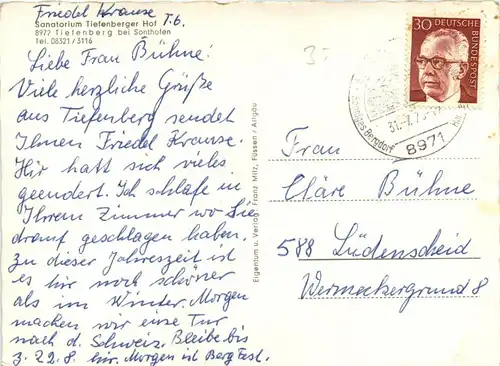 Friedel Krause T.6.
Sanatorium Tiefenberger Hof
8977 Tiefenberg bei Sonthofen
Tel. 08321/3116
Liebe Frau Bühne!
Viele herzliche Grüße
aus Tiefenberg sendet
Ihnen Friedel Krause.
Hir hatt sich vieles
geendert. Ich schlafe in
Ihrem Zimmer wo Sie
drauf geschlagen haben.
Zu dieser Jahreszeit ist
es hir noch schöner
als im Winter. Morgen
machen wir eine Tur
nach d. Schweiz. Bleibe bis
z. 22.8. hir. Morgen ist Bergfest.
Eigentum u. Verlag: Franz Milz, Füssen / Allgäu
30 DEUTSCHE
BUNDESPOST
31.-7.7
8971
Frau
Cläre Bühne
588 Lüdenscheid
Wermeckergrund 8